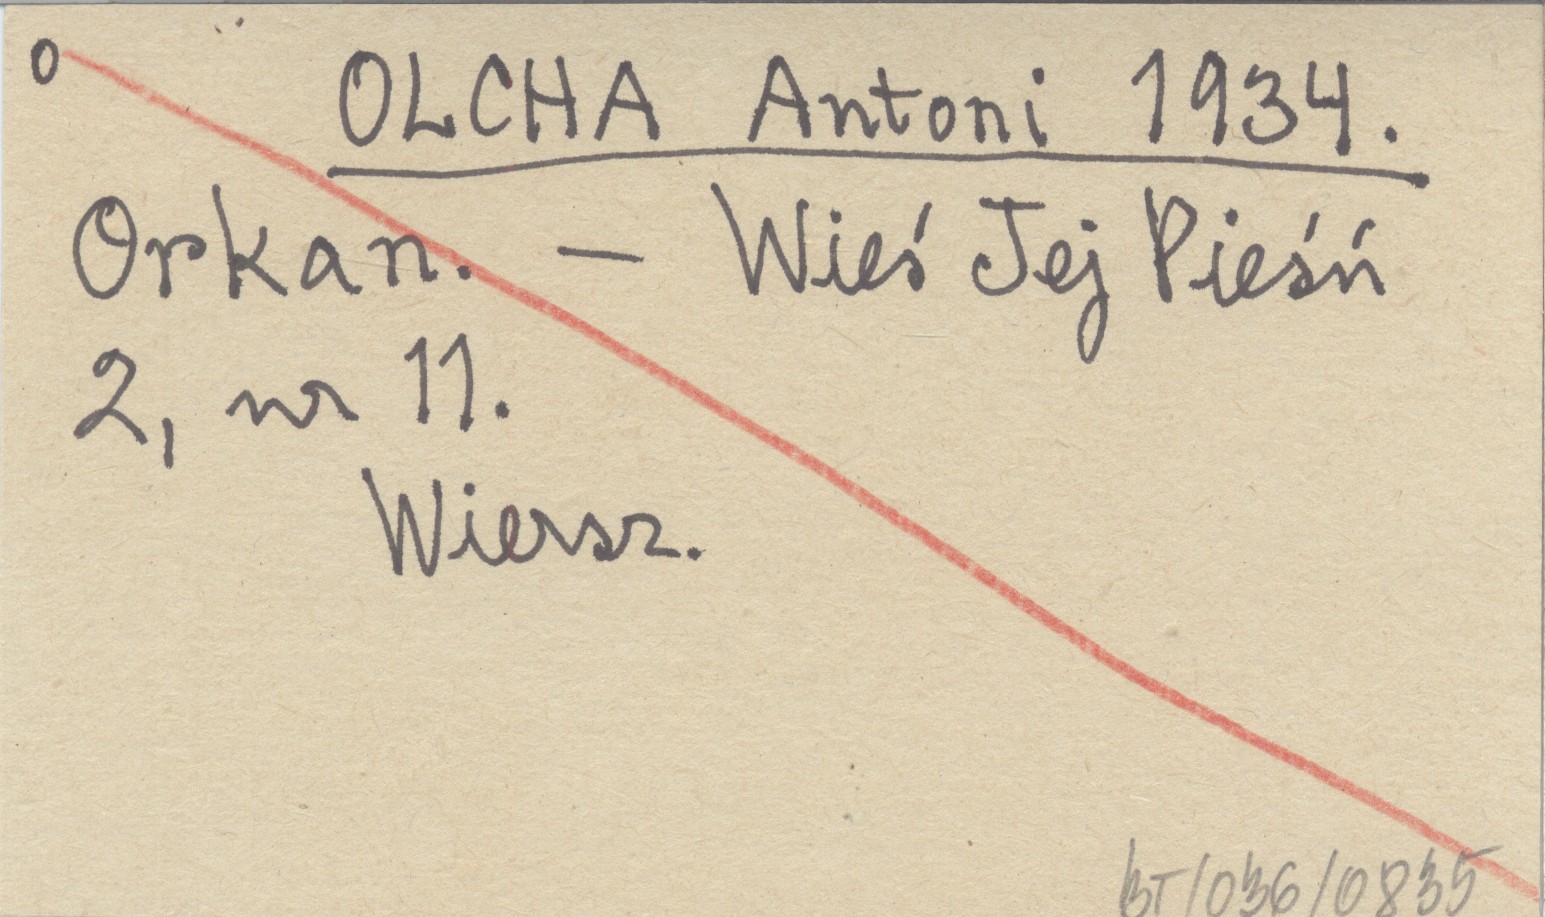 O
OLCHA Antoni 1934.
Orkan. — Wieś Jej Pieśń
2, nr 11.
Wiersz.
BT/036/0835